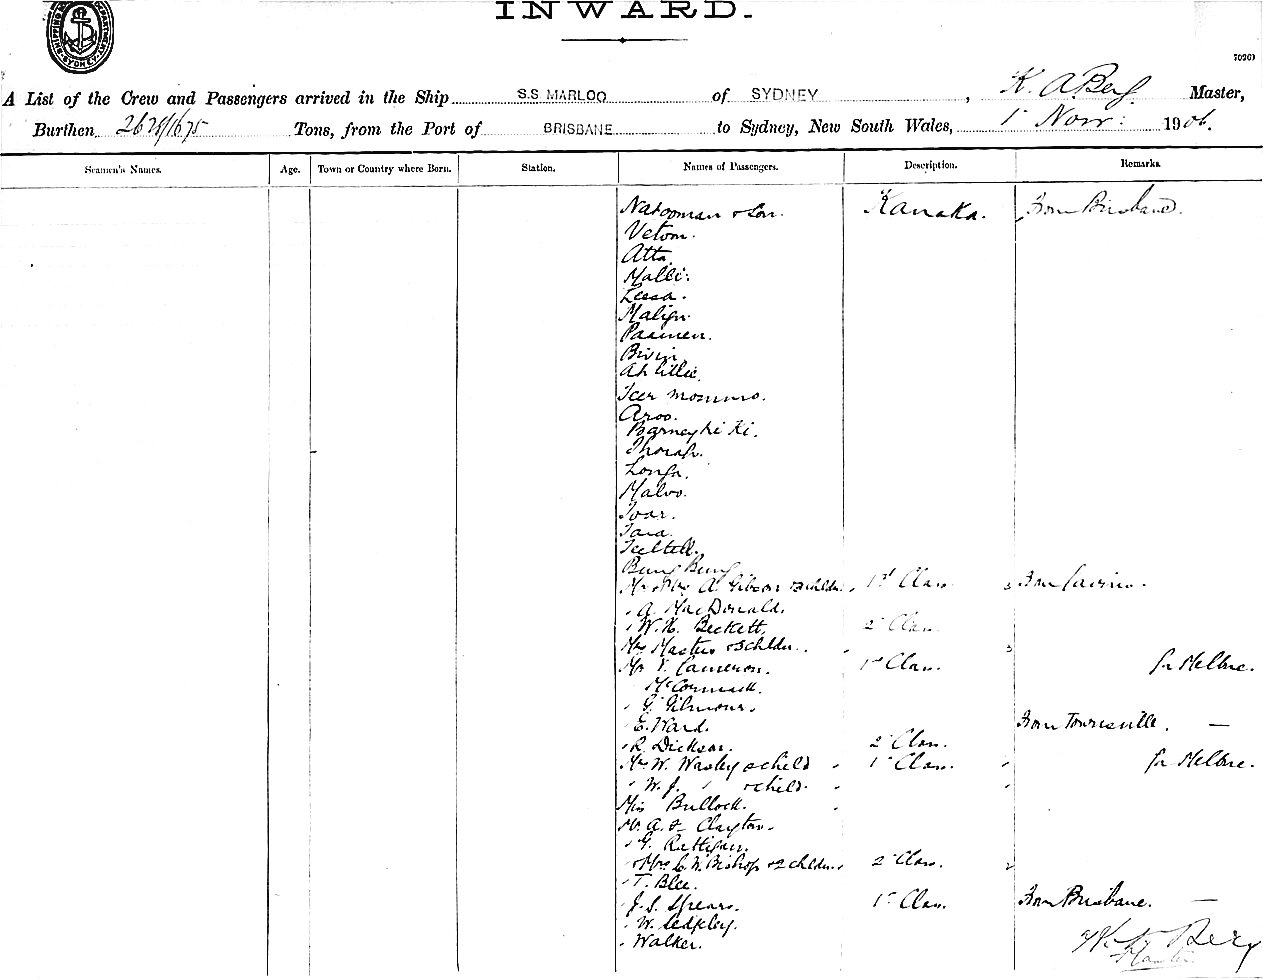 SHIPPING
DEPARTMENT
SYDNEY
INWARD.
A List of the Crew and Passengers arrived in the Ship S.S MARLOO of SYDNEY, K. A. Berg Master,
Burthen 2628/1675 Tons, from the Port of BRISBANE to Sydney, New South Wales, 1 Novr: 1906.
Seamen's Names. Age. Town or Country where Born. Station. Names of Passengers. Description. Remarks.
& Son. Kanaka. From Brisbane.
Vetom.
Atta
Malli.
Leesa.
Paamen.
Bivin
Aroo.
Barney Ki Ki.
Longa.
Malvo.
Ivar.
Tara.
Bung Bung
Mr & Mrs A. Gibson & childn. 1st Class. 3 From
" A. MacDonald.
" W. H. Beckett. 2d Class.
Mrs Masters & 3 childn. " 3
Mr Cameron. 1st Class. for Melbne.
McCormack.
" G. Gilmour.
" E. Ward. From Townsville. —
" R. Dickson. 2d Class.
Mrs W. Wasley & child " 1st Class. " for Melbne.
" W. J. " & child. " "
Miss Bullock. "
Mr. A. Clayton.
" G. Rattigan.
" Mrs Bishop & 2 childn. " 2d Class. 2
" T. Blee.
" J. S. Spears. 1st Class. From Brisbane. —
" W. Sedgley.
" Walker.
Berg
Master